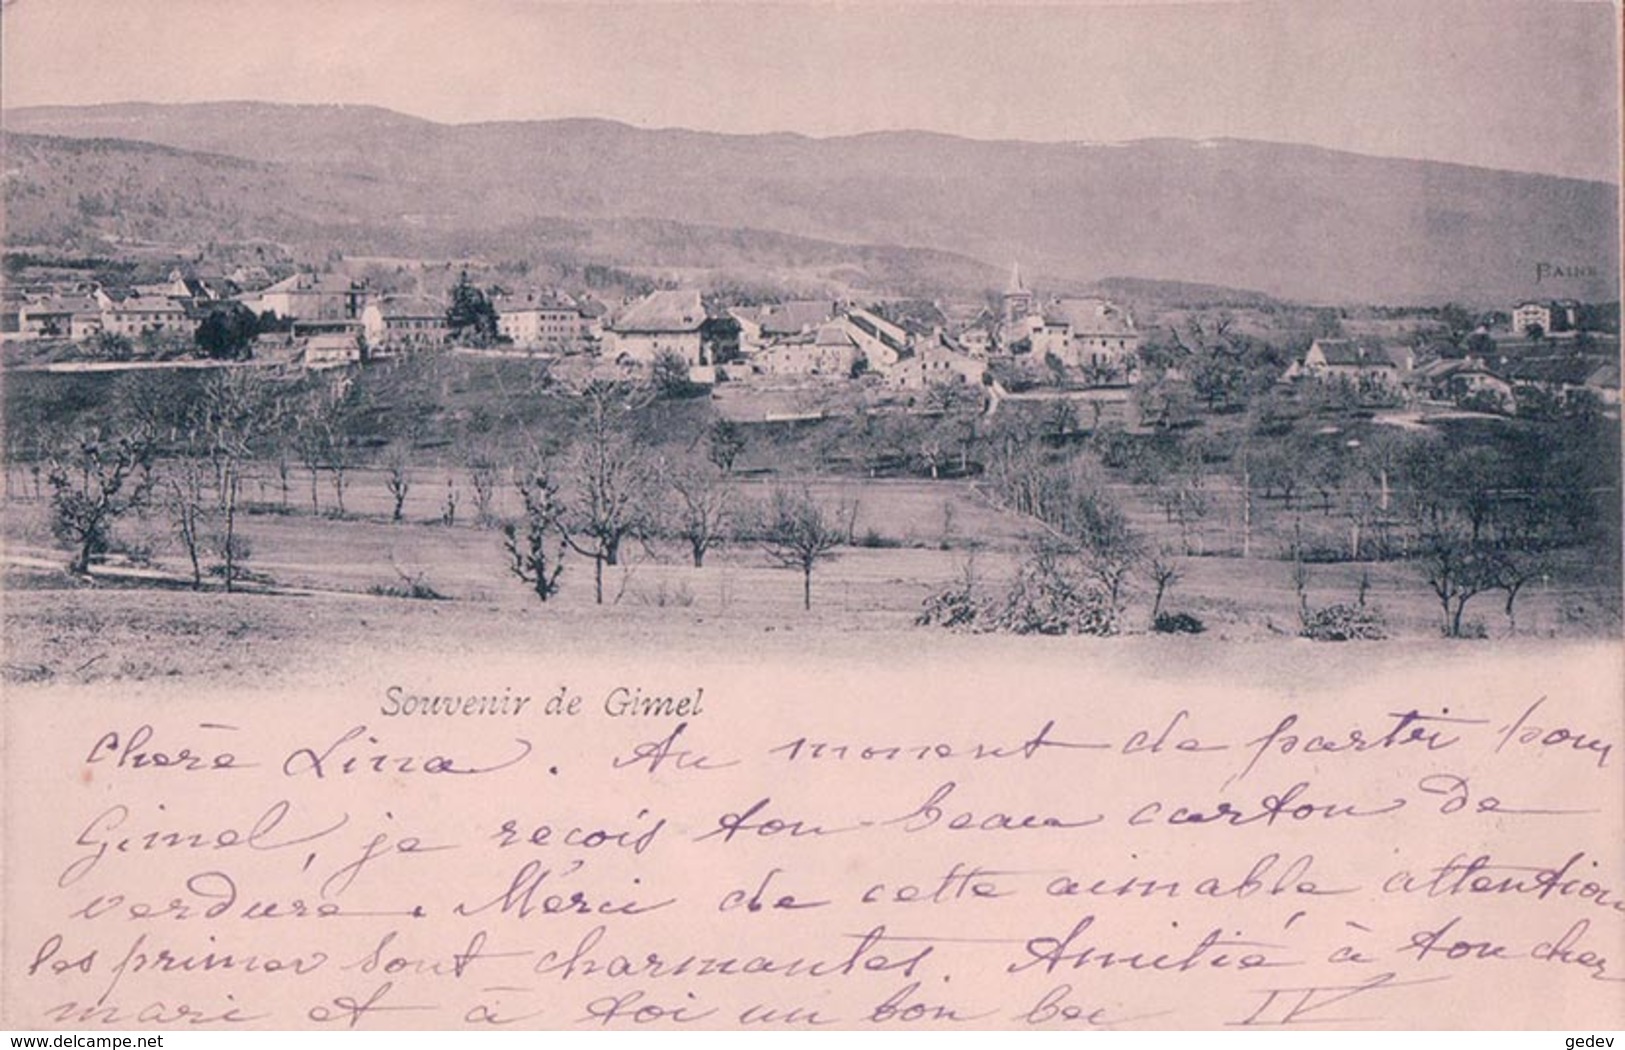 BAINS
Souvenir de Gimel
Chère Lina. Au moment de partir pour
Gimel, je recois ton beau carton de
verdure. Mérci de cette aimable attention
les primev sont charmantes. Amitié à ton cher
mari et à toi un bon
delcampe.net
gedev